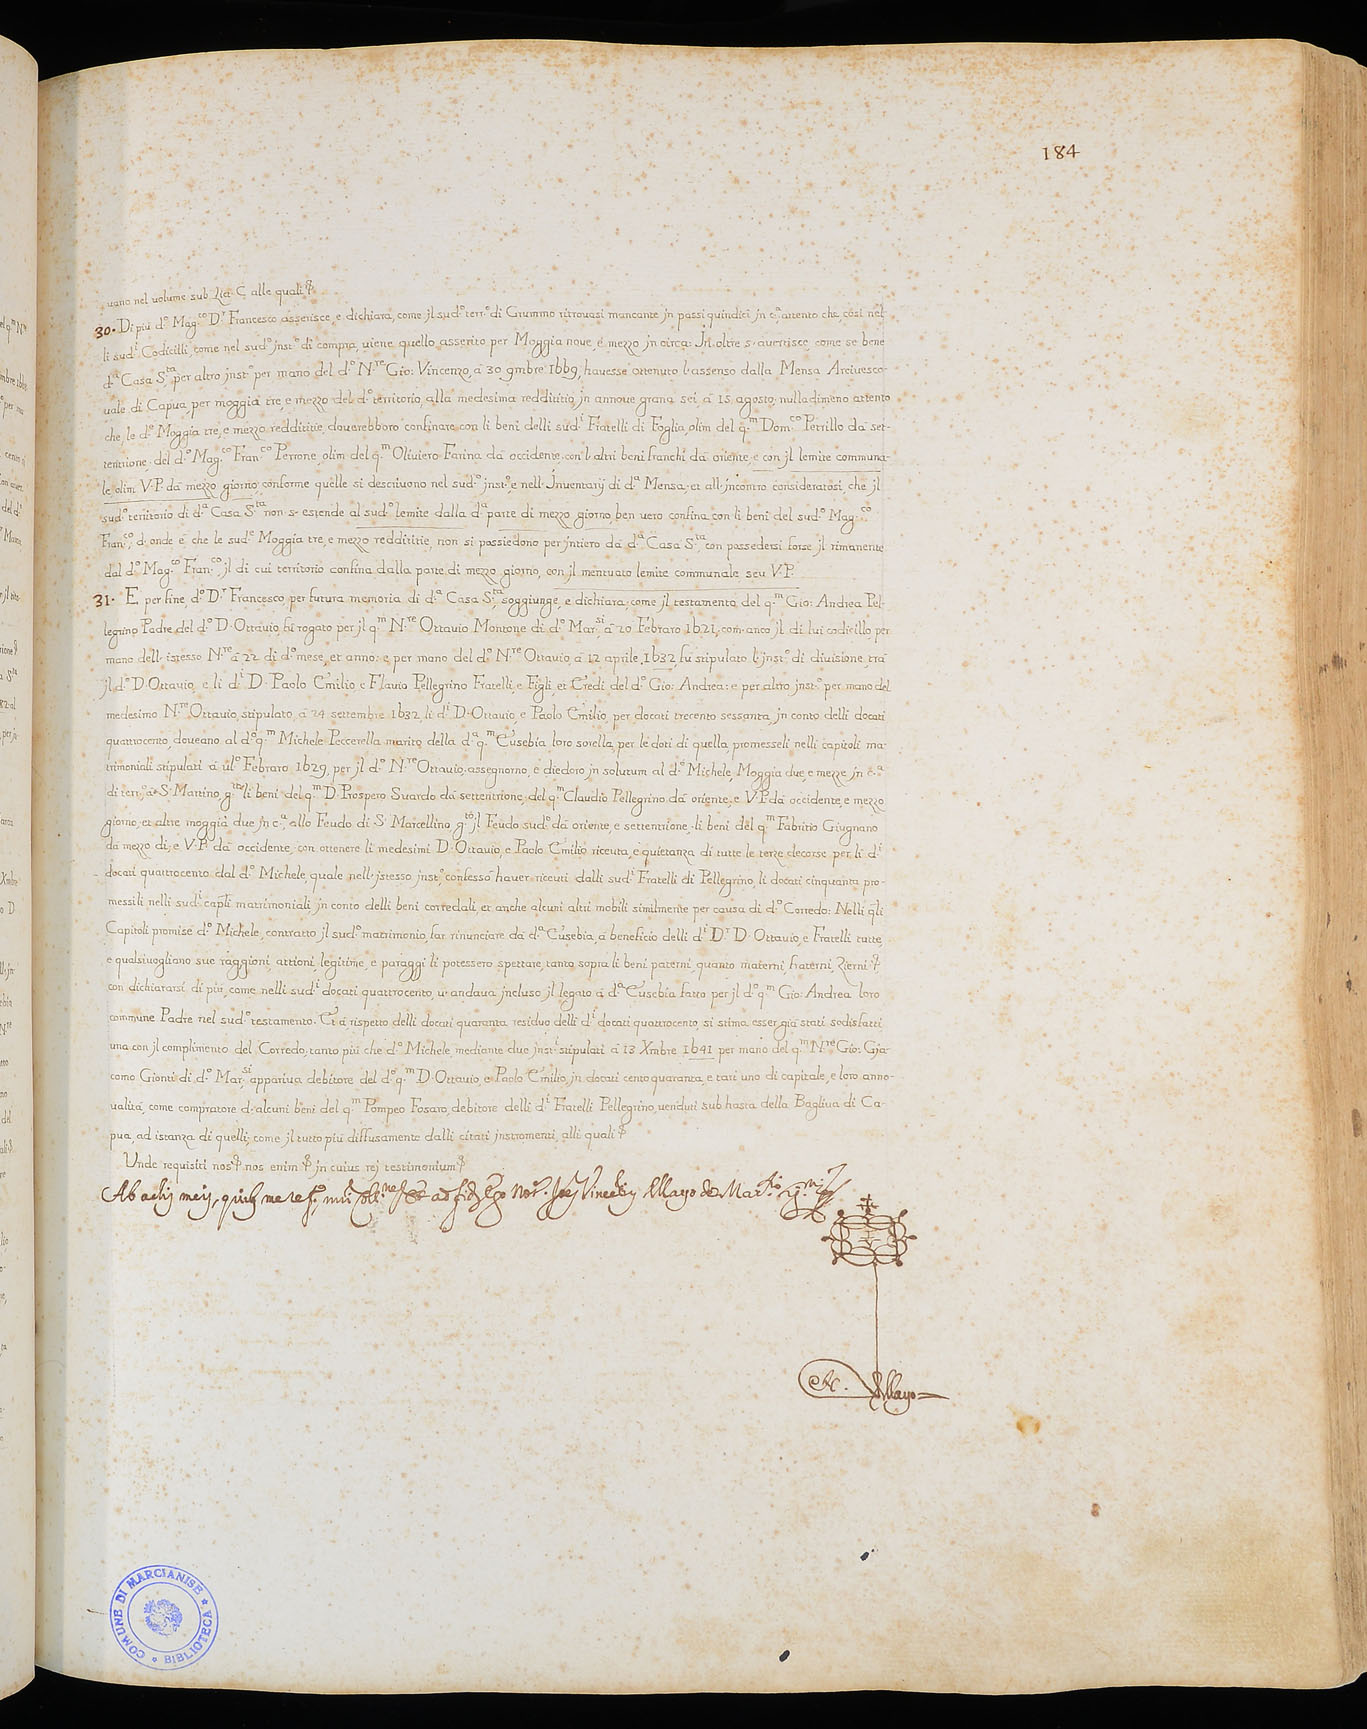 184
uano nel volume sub Lra C alle quali
30. Di più d.º Mag.co D.r Francesco asserisce, e dichiara, come jl sud.º terr.º di Grummo ritrovasi mancante jn passi quindici jn c.a, attento che, così nel-
li sud.i Codicilli, come nel sud.º jnst.º di compra, uiene quello asserito per Moggia noue, è mezzo jn circa: Jn oltre s'auertisce, come se bene
d.a Casa S.ta per altro jnst.º per mano del d.º N.re Gio: Vincenzo, à 30 9mbre 1669, hauesse ottenuto l'assenso dalla Mensa Arciuesco-
uale di Capua, per moggia tre, e mezzo del d.º territorio, alla medesima reddititio, jn annoue grana sei, à 15 agosto; nulladimeno attento
che, le d.e Moggia tre, e mezzo reddititie, douerebboro confinare con li beni delli sud.i Fratelli di Foglia, olim del q.m Dom.co Petrillo da set-
tentrione, del d.º Mag.co Fran.co Perrone, olim del q.m Oliuiero Farina dà occidente, con l'altri beni franchi dà oriente, e con jl lemite communa-
le, olim V.P. dà mezzo giorno, conforme quelle si descriuono nel sud.º jnst.º, e nell'Jnuentarij di d.a Mensa; et all'jncontro consideratosi, che jl
sud.º territorio di d.a Casa S.ta non s'estende al sud.º lemite dalla d.a parte di mezzo giorno, ben uero confina con li beni del sud.º Mag.co
Fran.co, d'onde è che le sud.e Moggia tre, e mezzo reddititie, non si possiedono per jntiero dà d.a Casa S.ta, con possedersi forse jl rimanente
dal d.º Mag.co Fran.co, jl di cui territorio confina dalla parte di mezzo giorno, con jl mentuato lemite communale, seu V.P.
31. E per fine d.º D.r Francesco, per futura memoria di d.a Casa S.ta, soggiunge, e dichiara, come jl testamento del q.m Gio: Andrea Pel-
legrino Padre del d.º D. Ottauio, fù rogato per jl q.m N.re Ottauio Montone di d.º Mar.si à 20 Febraro 1621, com'anco jl di lui codicillo per
mano dell'istesso N.re à 22 di d.º mese, et anno: e per mano del d.º N.re Ottauio, à 12 aprile, 1632, fù stipulato l'jnst.º di diuisione trà
jl d.º D. Ottauio, e li d.i D. Paolo Emilio, e Flauio Pellegrino Fratelli, e Figli, et Eredi del d.º Gio: Andrea: e per altro jnst.º per mano del
medesimo N.re Ottauio, stipulato, à 24 settembre 1632, li d.i D. Ottauio, e Paolo Emilio, per docati trecento sessanta, jn conto delli docati
quattrocento, doueano al d.º q.m Michele Peccerella marito della d.a q.m Eusebia loro sorella, per le doti di quella, promesseli nelli capitoli ma-
trimoniali stipulati à ul.º Febraro 1629, per jl d.º N.re Ottauio, assegnorno, e diedoro jn solutum al d.º Michele, Moggia due, e mezze jn c.a
di terr.º à S. Martino, g.to li beni del q.m D. Prospero Suardo dà settentrione, del q.m Claudio Pellegrino dà oriente, e V.P. dà occidente, e mezzo
giorno, et altre moggia due jn c.a, allo Feudo di S. Marcellino, g.to jl Feudo sud.º dà oriente, e settentrione, li beni del q.m Fabritio Giugnano
dà mezzo dì, e V.P. dà occidente, con ottenere li medesimi D. Ottauio, e Paolo Emilio riceuta, e quietanza di tutte le terze decorse per li d.i
docati quattrocento dal d.º Michele, quale nell'jstesso jnst.º, confessò hauer riceuti dalli sud.i Fratelli di Pellegrino, li docati cinquanta pro-
messili nelli sud.i cap.li matrimoniali, jn conto delli beni corredali, et anche alcuni altri mobili similmente per causa di d.º Corredo: Nelli q.li
Capitoli promise d.º Michele, contratto jl sud.º matrimonio, far rinunciare dà d.a Eusebia, à beneficio delli d.i D.r D. Ottauio, e Fratelli tutte,
e qualsiuogliano sue raggioni, attioni, legitime, e paraggi li potessero spettare, tanto sopra li beni paterni, quanto materni, fraterni,
con dichiararsi di più, come nelli sud.i docati quattrocento, u'andaua jncluso jl legato à d.a Eusebia fatto per jl d.º q.m Gio: Andrea loro
commune Padre nel sud.º testamento. Et à rispetto delli docati quaranta residuo delli d.i docati quattrocento, si stima esser già stati sodisfatti
una con jl complimento del Corredo, tanto più che d.º Michele, mediante due jnst.i stipulati à 13 Xmbre 1641 per mano del q.m N.re Gio: Gia-
como Gionti di d.º Mar.si, appariua debitore del d.º q.m D. Ottauio, e Paolo Emilio, jn docati cento quaranta, e tarì uno di capitale, e loro anno-
ualità, come compratore d'alcuni beni del q.m Pompeo Fosaro, debitore delli d.i Fratelli Pellegrino, uenduti sub hasta della Bagliua di Ca-
pua, ad istanza di quelli; come jl tutto più diffusamente dalli citati jnstromenti, alli quali
Unde requisiti nos nos enim jn cuius rej testimonium
Ab actis meis, ad fidem Ego Not.r Mayo de Mar.
Mayo
COMUNE DI MARCIANISE * BIBLIOTECA *